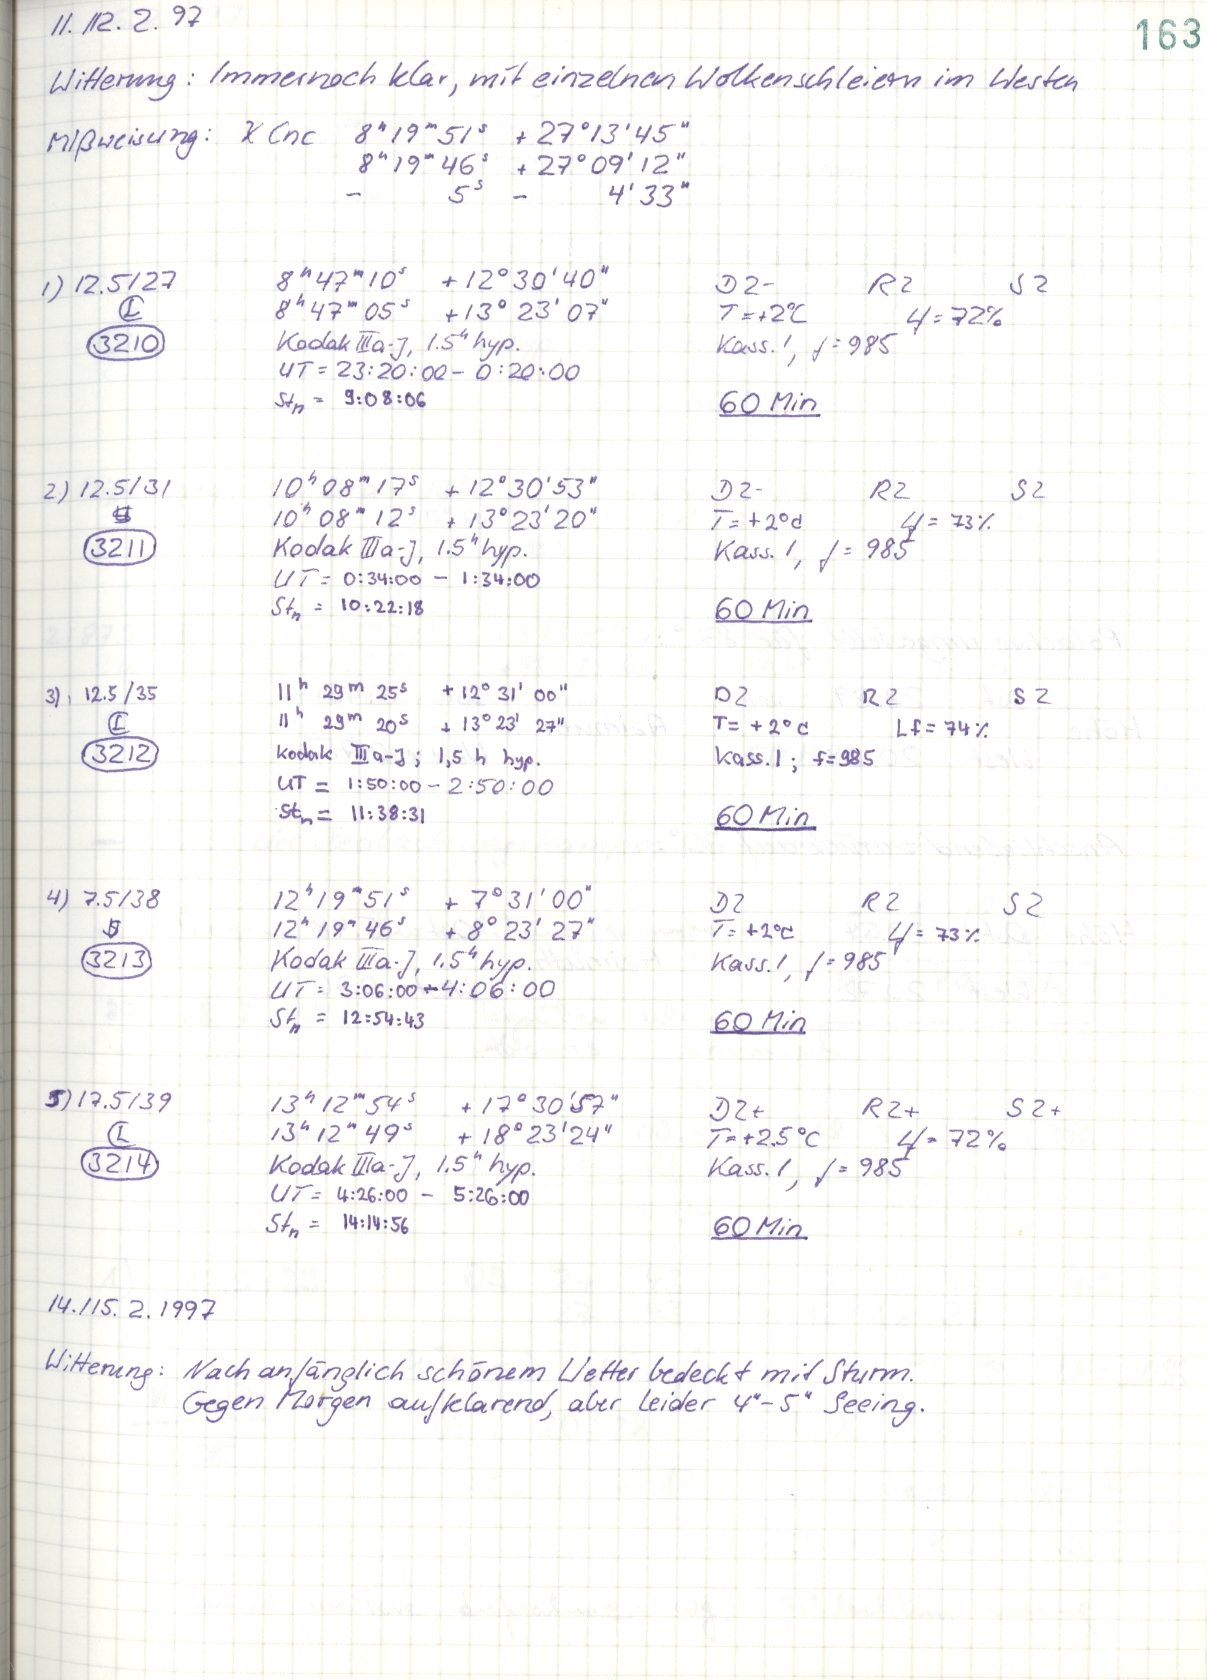 11./12.2.97
163
Witterung: Immernoch klar, mit einzelnen Wolkenschleiern im Westen
Mißweisung: χ Cnc 8ʰ19ᵐ51ˢ +27°13'45"
8ʰ19ᵐ46ˢ +27°09'12"
- 5ˢ - 4'33"
1) 12.5/27 8ʰ47ᵐ10ˢ +12°30'40" D2- R2 S2
8ʰ47ᵐ05ˢ +13°23'07" T=+2°C Lf=72%
3210 Kodak IIIa-J, 1.5ʰ hyp. Kass.1, f=985
UT=23:20:00-0:20:00
Stₙ = 9:08:06 60 Min
2) 12.5/31 10ʰ08ᵐ17ˢ +12°30'53" D2- R2 S2
10ʰ08ᵐ12ˢ +13°23'20" T=+2°C Lf=73%
3211 Kodak IIIa-J, 1.5ʰ hyp. Kass.1, f=985
UT= 0:34:00 - 1:34:00
Stₙ = 10:22:18 60 Min
3) 12.5/35 11ʰ 29ᵐ 25ˢ +12° 31' 00" D2 R2 S2
11ʰ 29ᵐ 20ˢ +13° 23' 27" T= +2°C Lf=74%
3212 Kodak IIIa-J; 1,5 h hyp. Kass.1; f=985
UT = 1:50:00-2:50:00
Stₙ= 11:38:31 60 Min
4) 7.5/38 12ʰ19ᵐ51ˢ +7°31'00" D2 R2 S2
12ʰ19ᵐ46ˢ +8°23'27" T=+2°C Lf=73%
3213 Kodak IIIa-J, 1.5ʰ hyp. Kass.1, f=985
UT= 3:06:00-4:06:00
Stₙ = 12:54:43 60 Min
5) 17.5/39 13ʰ12ᵐ54ˢ +17°30'57" D2+ R2+ S2+
13ʰ12ᵐ49ˢ +18°23'24" T=+2.5°C Lf=72%
3214 Kodak IIIa-J, 1.5ʰ hyp. Kass.1, f=985
UT= 4:26:00 - 5:26:00
Stₙ = 14:14:56 60 Min
14./15.2.1997
Witterung: Nach anfänglich schönem Wetter bedeckt mit Sturm.
Gegen Morgen aufklarend, aber leider 4"-5" Seeing.